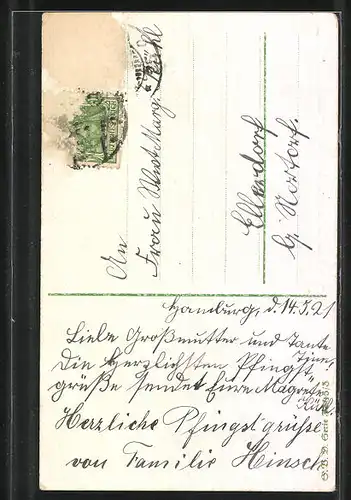 An
Frau Wwe Marg. Rühl
Ellerdorf
b. Nortorf.
Hamburg, d. 14.5.21
Liebe Großmutter und Tante
Tine!
Die Herzlichsten Pfingst
grüße sendet Eure Magrete
Rühl
Herzliche Pfingstgrüße
von Familie Hinsch
Serie